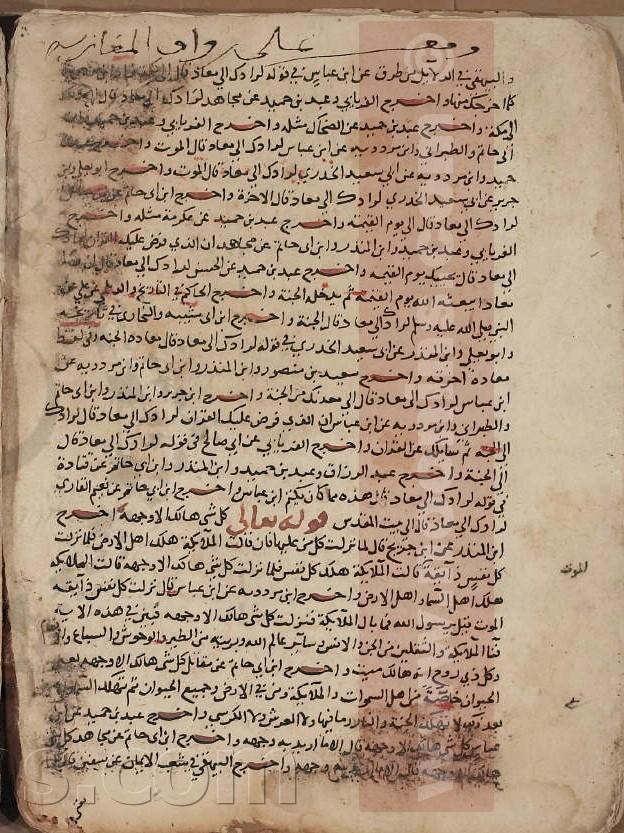 وقف على رواق المغاربة
والبيهقي في الدلايل من طرق عن ابن عباس في قوله لرادك الى معاد قال الى مكة
كما اخرجك منها واخرج الفريابي وعبد بن حميد عن مجاهد لرادك الى معاد قال
الى مكة واخرج عبد بن حميد عن الضحاك مثله واخرج الفريابي وعبد بن حميد
ابى حاتم والطبراني وابن مردويه عن ابن عباس لرادك الى معاد قال الموت واخرج
حميد وابن مردويه عن ابى سعيد الخدري لرادك الى معاد قال الموت واخرج ابو يعلى وابن
جرير عن ابى سعيد الخدري لرادك الى معاد قال الاخرة واخرج ابن ابى حاتم
لرادك الى معاد قال الى يوم القيمة واخرج عبد بن حميد عن عكرمة مثله واخرج
الفريابي وعبد بن حميد وابن المنذر وابن ابى حاتم عن مجاهد ان الذي فرض عليك القران
الى معاد قال يحييك يوم القيمة واخرج عبد بن حميد عن الحسن لرادك الى معاد قال ان له
معادا يبعثه الله يوم القيمة ثم يدخله الجنة واخرج الحاكم في التاريخ والديلمي عن على عن
النبي صلى الله عليه وسلم لرادك الى معاد قال الجنة واخرج ابن ابى شيبة والبخاري في تاريخه
وابو يعلى وابن المنذر عن ابى سعيد الخدري في قوله لرادك الى معاد قال معاده الجنة وفى لفظ
معاده اخرته واخرج سعيد بن منصور وابن المنذر وابن ابى حاتم وابن مردويه عن
ابن عباس لرادك الى معاد قال الى معدنك من الجنة واخرج ابن جرير وابن المنذر وابن ابى حاتم
والطبرانى وابن مردويه عن ابن عباس ان الذي فرض عليك القران لرادك الى معاد قال لرادك
الى الجنة ثم سايلك عن القران واخرج الفريابي عن ابى صالح في قوله لرادك الى معاد قال
الى الجنة واخرج عبد الرزاق وعبد بن حميد وابن المنذر وابن ابى حاتم عن قتادة
في قوله لرادك الى معاد قال هذه مما كان يكتم ابن عباس واخرج ابن ابى حاتم عن نعيم القاري
لرادك الى معاد قال الى بيت المقدس قوله تعالى كل شي هالك الا وجهه اخرج
ابن المنذر عن ابن جريج قال لما نزلت كل من عليها فان قالت الملايكة هلك اهل الارض فلما نزلت
كل نفس ذايقة قالت الملايكة هلك كل نفس فلما نزلت كل شي هالك الا وجهه قالت الملايكة
هلك اهل السما واهل الارض واخرج ابن مردويه عن ابن عباس قال لما نزلت كل نفس ذايقة
الموت
الموت قيل يرسول الله فما بال الملايكة فنزلت كل شي هالك الا وجهه فبين في هذه الاية
فنا الملايكة والثقلين من الجن والانس وساير عالم الله وبريته من الطير والوحوش والسباع والانعام
وكل ذي روح انه هالك ميت واخرج ابن ابى حاتم عن مقاتل كل شي هالك الا وجهه يعنى
الحيوان خاصة من اهل السموات والملايكة ومن في الارض وجميع الحيوان ثم تهلك السما
بعد ذلك ولا تهلك الجنة والنار وما فيها ولا العرش ولا الكرسي واخرج عبد بن حميد عن ابن
عباس كل شي هالك الا وجهه قال الا ما اريد به وجهه واخرج ابن ابى حاتم عن مجاهد كل شي
هالك الا وجهه قال الا ما اريد به وجهه واخرج البيهقي في شعب الايمان عن سفين قال